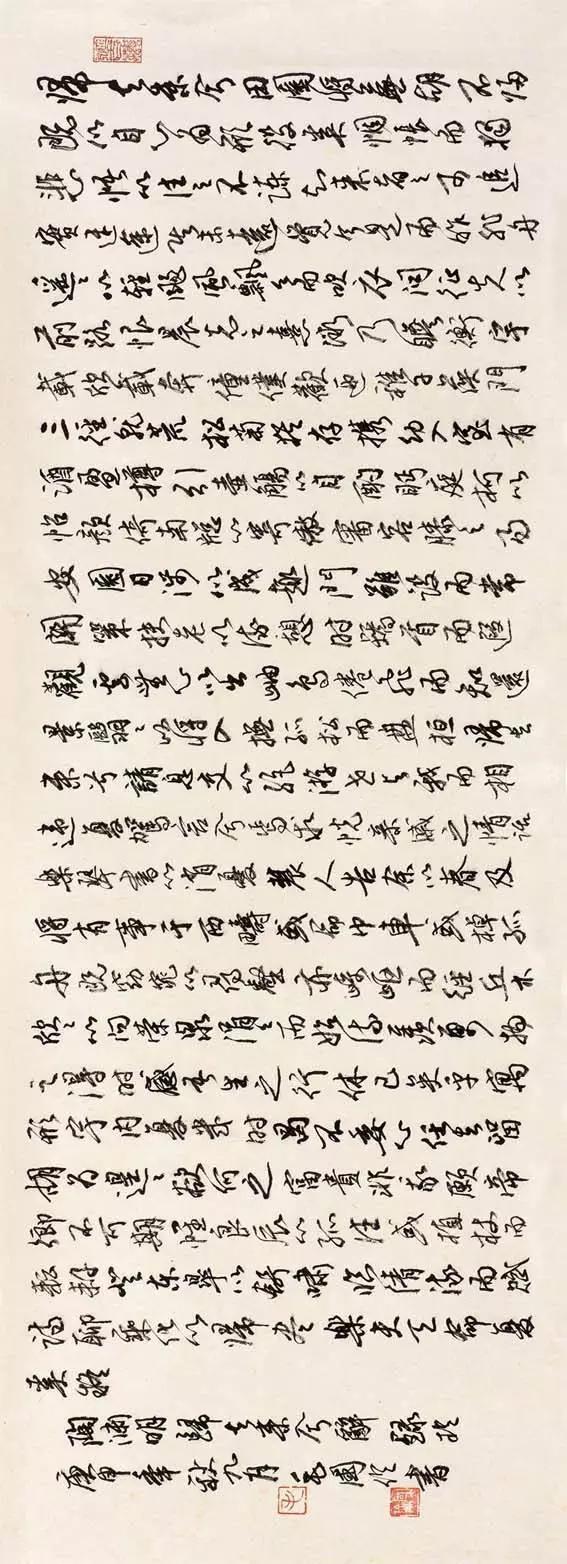 歸去來兮田園將蕪胡不歸
既以自心為形役奚惆悵而獨
悲悟以往之不諫知來者之可追
實迷途其未遠覺今是而昨非舟
遙〻以輕颺風飄〻而吹衣問征夫以
前路恨晨光之熹微乃瞻衡宇
載欣載奔僮僕歡迎稚子候門
三徑就荒松菊猶存攜幼入室有
酒盈樽引壺觴以自酌眄庭柯以
怡顏倚南窗以寄傲審容膝之易
安園日涉以成趣門雖設而常
關策扶老以流憩時矯首而遐
觀雲無心以出岫鳥倦飛而知還
景翳〻以將入撫孤松而盤桓歸去
來兮請息交以絕游世與我而相
違復駕言兮焉求悅親戚之情話
樂琴書以消憂農人告余以春及
將有事于西疇或命巾車或棹孤
舟既窈窕以尋壑亦崎嶇而經丘木
欣〻以向榮泉涓〻而始流善萬物
之得時感吾生之行休已矣乎寓
形宇內復幾時曷不委心任去留
胡為遑〻欲何之富貴非吾願帝
鄉不可期懷良辰以孤往或植杖而
耘耔登東皋以舒嘯臨清流而賦
詩聊乘化以歸盡樂夫天命復
奚疑
陶淵明歸去來兮辭錄於
庚申年秋九月毛國典書